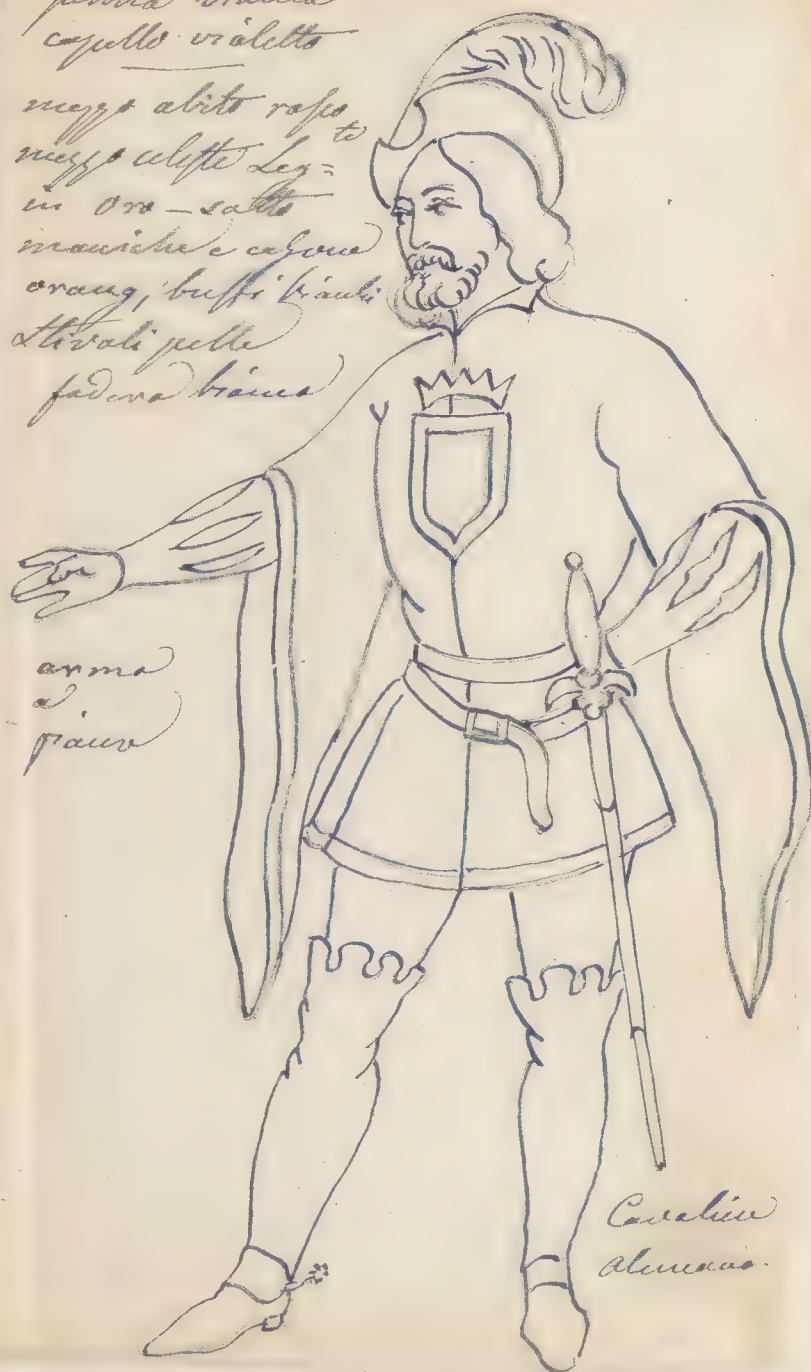 bianca
capello violetto
mezzo abito rosso
mezzo celeste Leg=
to
in oro - sotto
maniche e calzone
orang, buffi bianchi
Stivali pelle
fodera bianca
arma
a
piano
Cavaliere
Alemano.